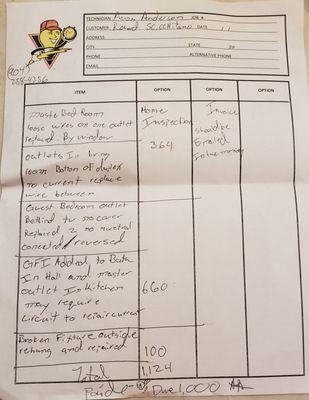 TECHNICIAN Anderson JOB #
CUSTOMER Richard DATE
ADDRESS
(904)
CITY STATE ZIP
258-4356
PHONE ALTERNATIVE PHONE
EMAIL
ITEM OPTION OPTION OPTION
Maste Bed Room Home Invoice
loose wires on one outlet Inspection should be
replaced. By window Emailed
Outlets In living 364
room Bottom of duplex
no current replace
wire between
Guest Bedroom outlet
Behind tv no cover
Replaced 2 no nuetral
conceled/reversed
GFI Added to Bath
In Hall and master
outlet In Kitchen 660
may require
circuit to repair current
Broken Fixture outside
rehung and repaired 100
Total 1,124
Due 1,000